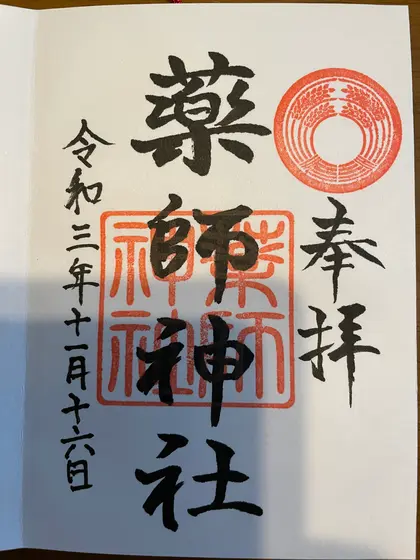 奉拝
薬師神社
薬師
神社
令和三年十一月十六日